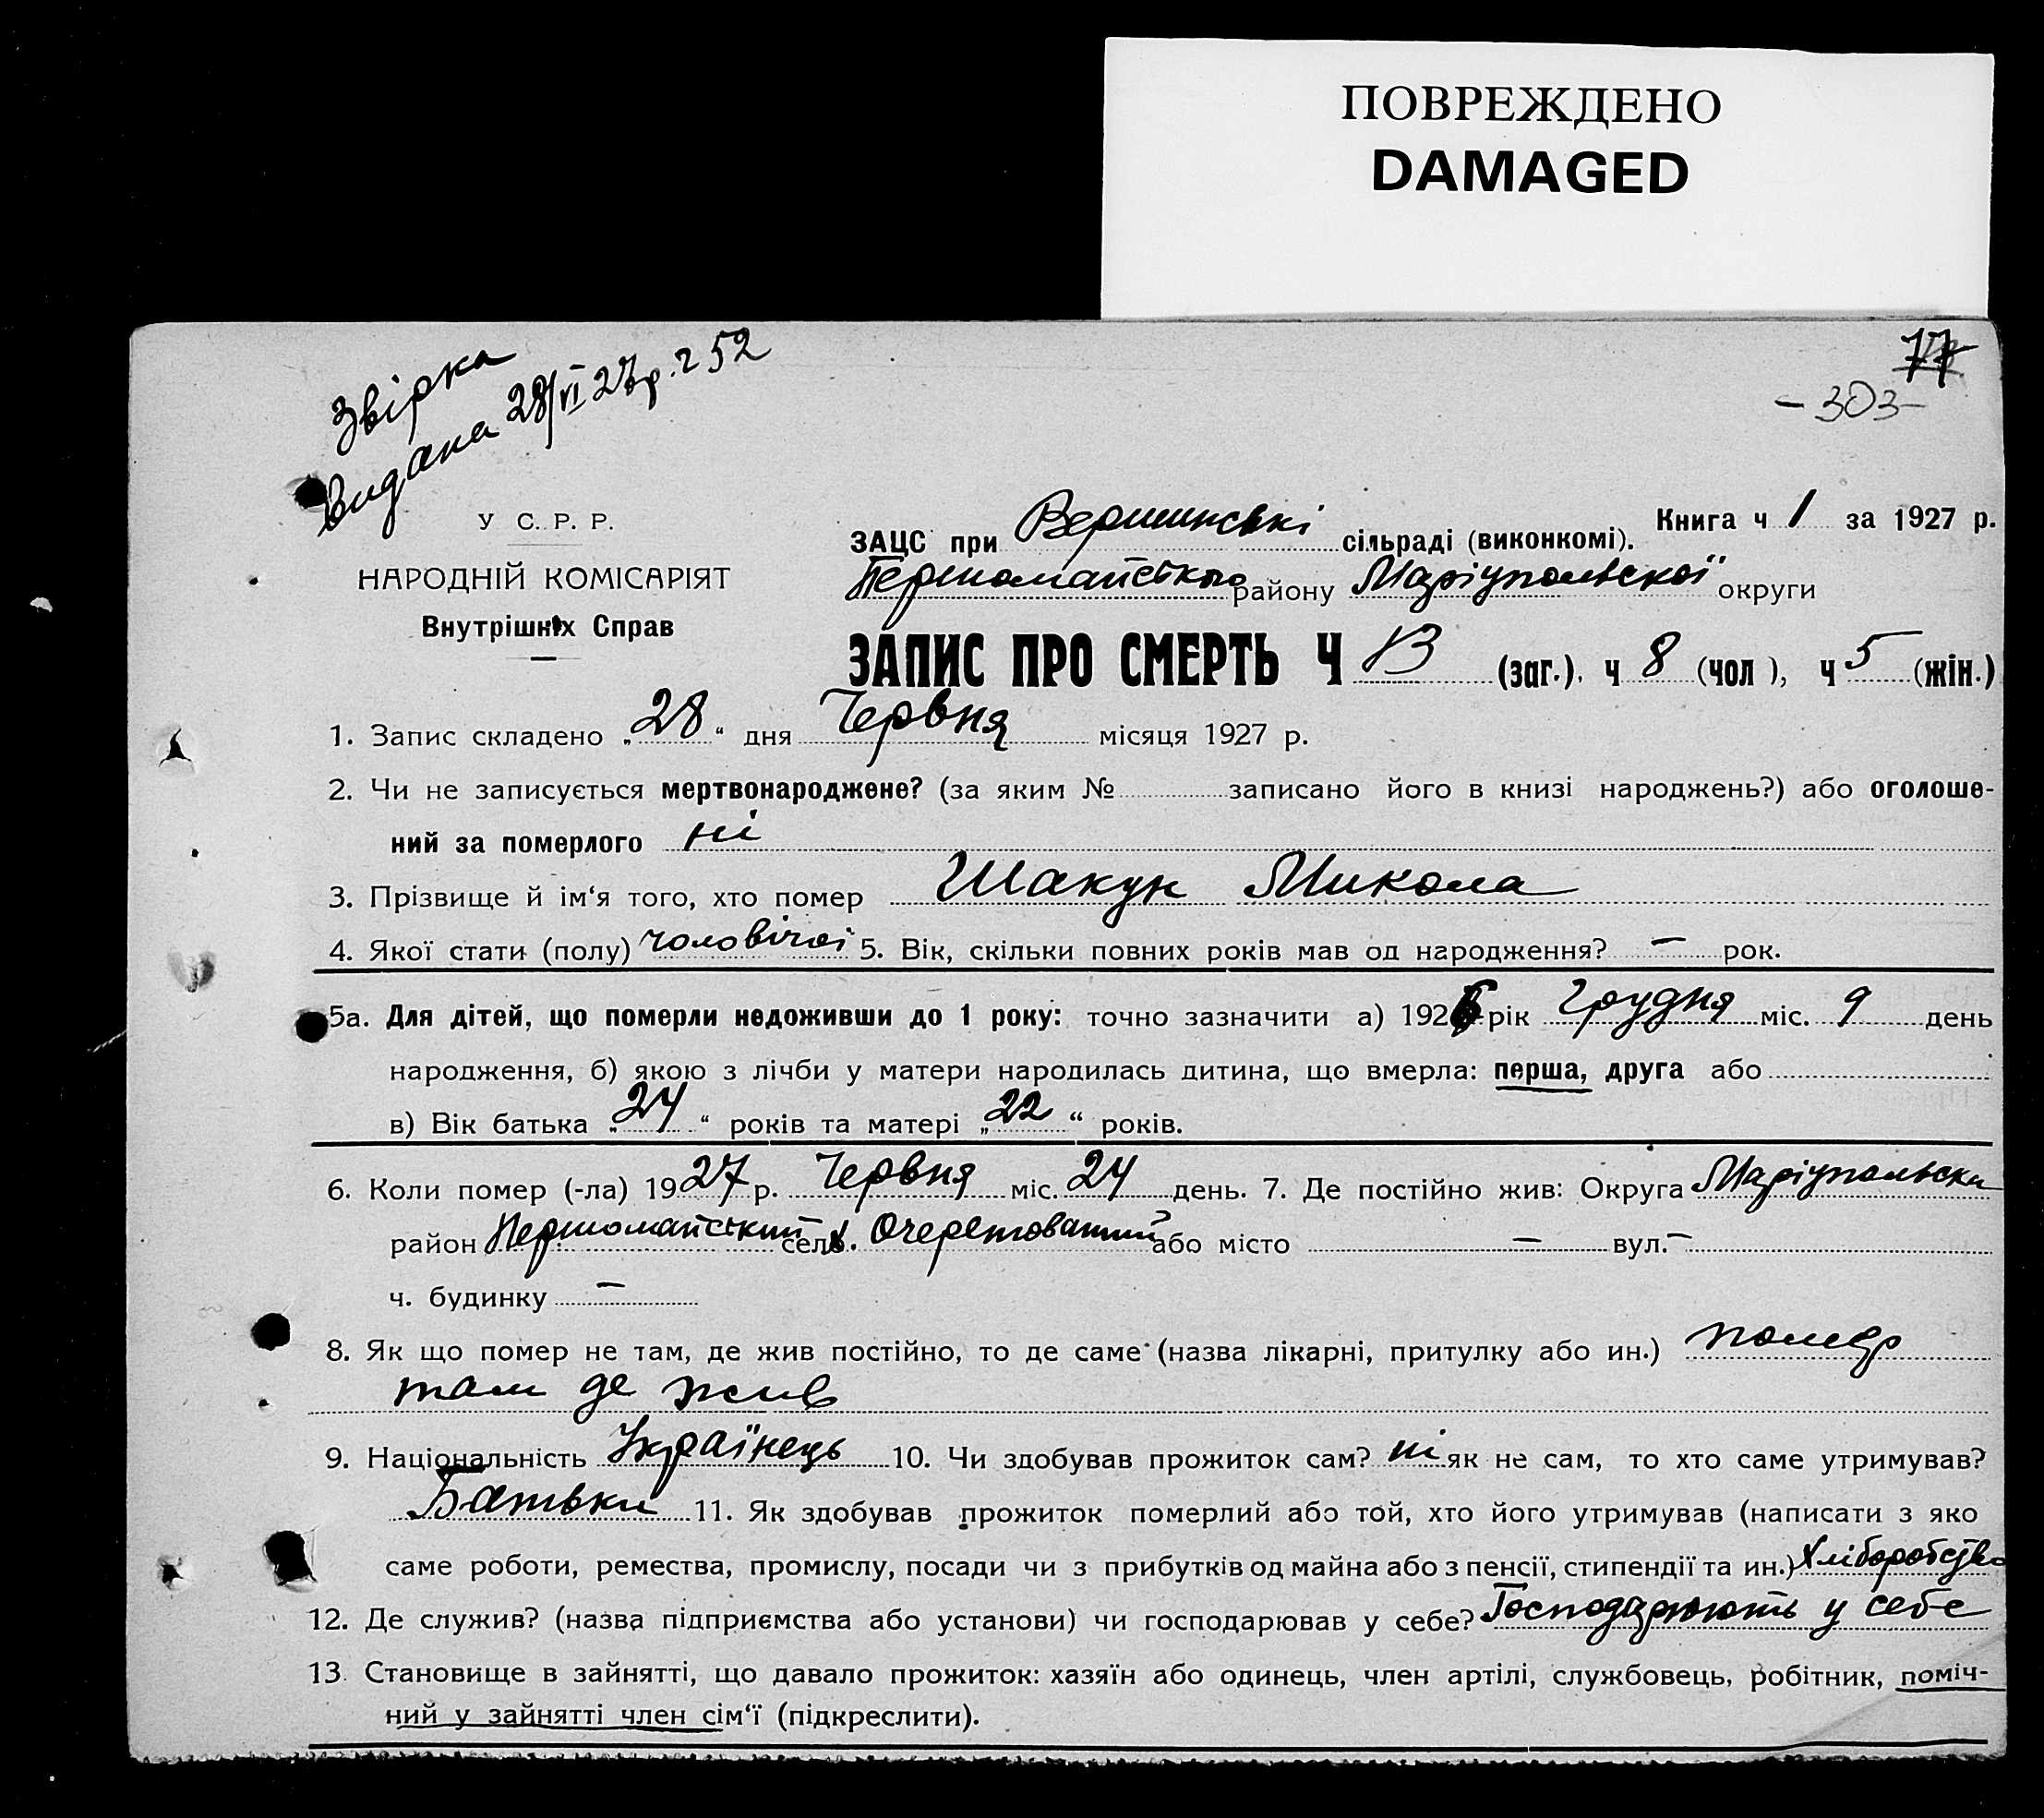 ПОВРЕЖДЕНО
DAMAGED
77
- 303 -
Звірка
видана 28/VI 27р. ч 52
У С. Р. Р.
НАРОДНІЙ КОМІСАРІЯТ
Внутрішніх Справ
Книга ч 1 за 1927 р.
ЗАЦС при Вершинські сільраді (виконкомі).
Першомайського району Маріупольської округи
ЗАПИС ПРО СМЕРТЬ Ч 13 (заг.). ч 8 (чол ), ч 5 (жін.)
1. Запис складено „28“ дня Червня місяця 1927 р.
2. Чи не записується мертвонароджене? (за яким № записано його в книзі народжень?) або оголоше-
ний за померлого ні
3. Прізвище й ім‘я того, хто помер Шакун Микола
4. Якої стати (полу) чоловічої 5. Вік, скільки повних років мав од народження? — рок.
5а. Для дітей, що померли недоживши до 1 року: точно зазначити а) 1926 рік Грудня міс. 9 день
народження, б) якою з лічби у матери народилась дитина, що вмерла: перша, друга або
в) Вік батька „24“ років та матері „22“ років.
6. Коли помер (-ла) 1927 р. Червня міс. 24 день. 7. Де постійно жив: Округа Маріупольска
район Першомайський х. Очеретоватий або місто — вул. —
ч. будинку —
8. Як що помер не там, де жив постійно, то де саме (назва лікарні, притулку або ин.) помер
там де жив
9. Національність Українець 10. Чи здобував прожиток сам? ні як не сам, то хто саме утримував?
Батьки 11. Як здобував прожиток померлий або той, хто його утримував (написати з яко
саме роботи, ремества, промислу, посади чи з прибутків од майна або з пенсії, стипендії та ин.) Хліборобство
12. Де служив? (назва підприємства або установи) чи господарював у себе? Господарюють у себе
13. Становище в зайнятті, що давало прожиток: хазяїн або одинець, член артілі, службовець, робітник, поміч-
ний у зайнятті член сім‘ї (підкреслити).